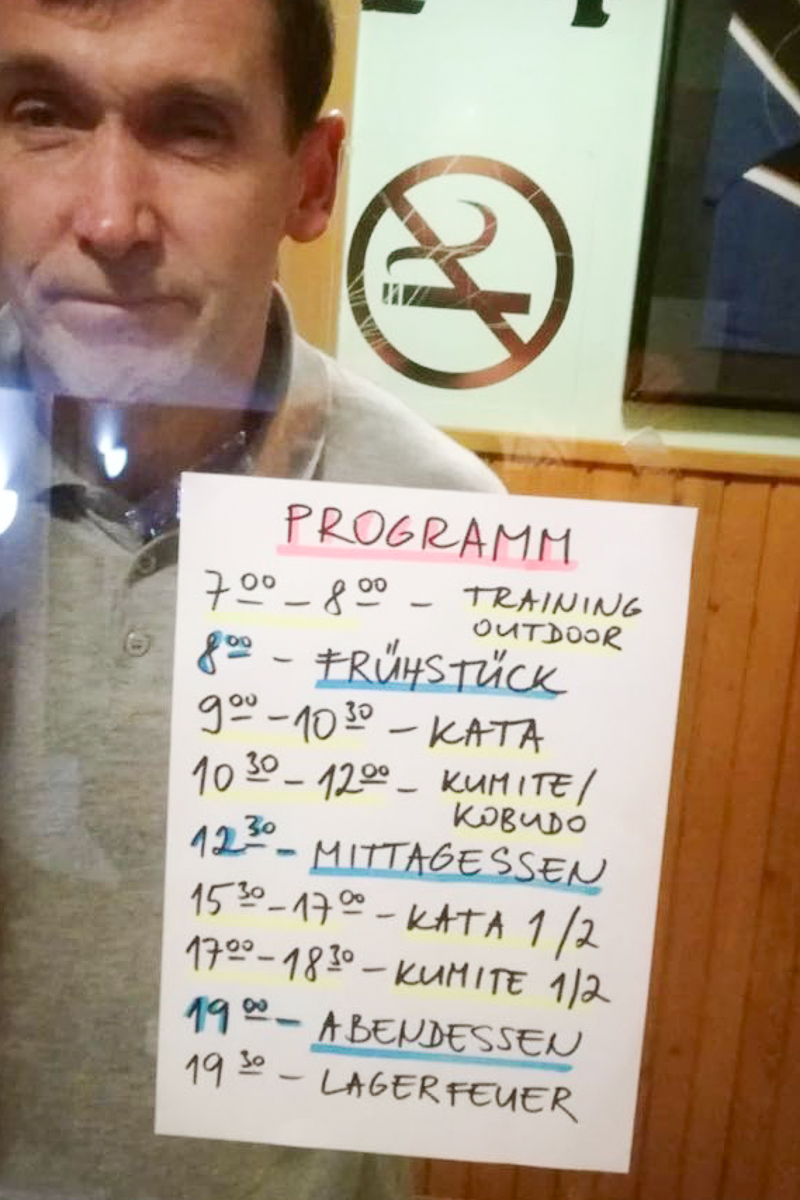 PROGRAMM
7⁰⁰ – 8⁰⁰ – TRAINING
OUTDOOR
8⁰⁰ – FRÜHSTÜCK
9⁰⁰ – 10³⁰ – KATA
10³⁰ – 12⁰⁰ – KUMITE/
KOBUDO
12³⁰ – MITTAGESSEN
15³⁰ – 17⁰⁰ – KATA 1/2
17⁰⁰ – 18³⁰ – KUMITE 1/2
19⁰⁰ – ABENDESSEN
19³⁰ – LAGERFEUER